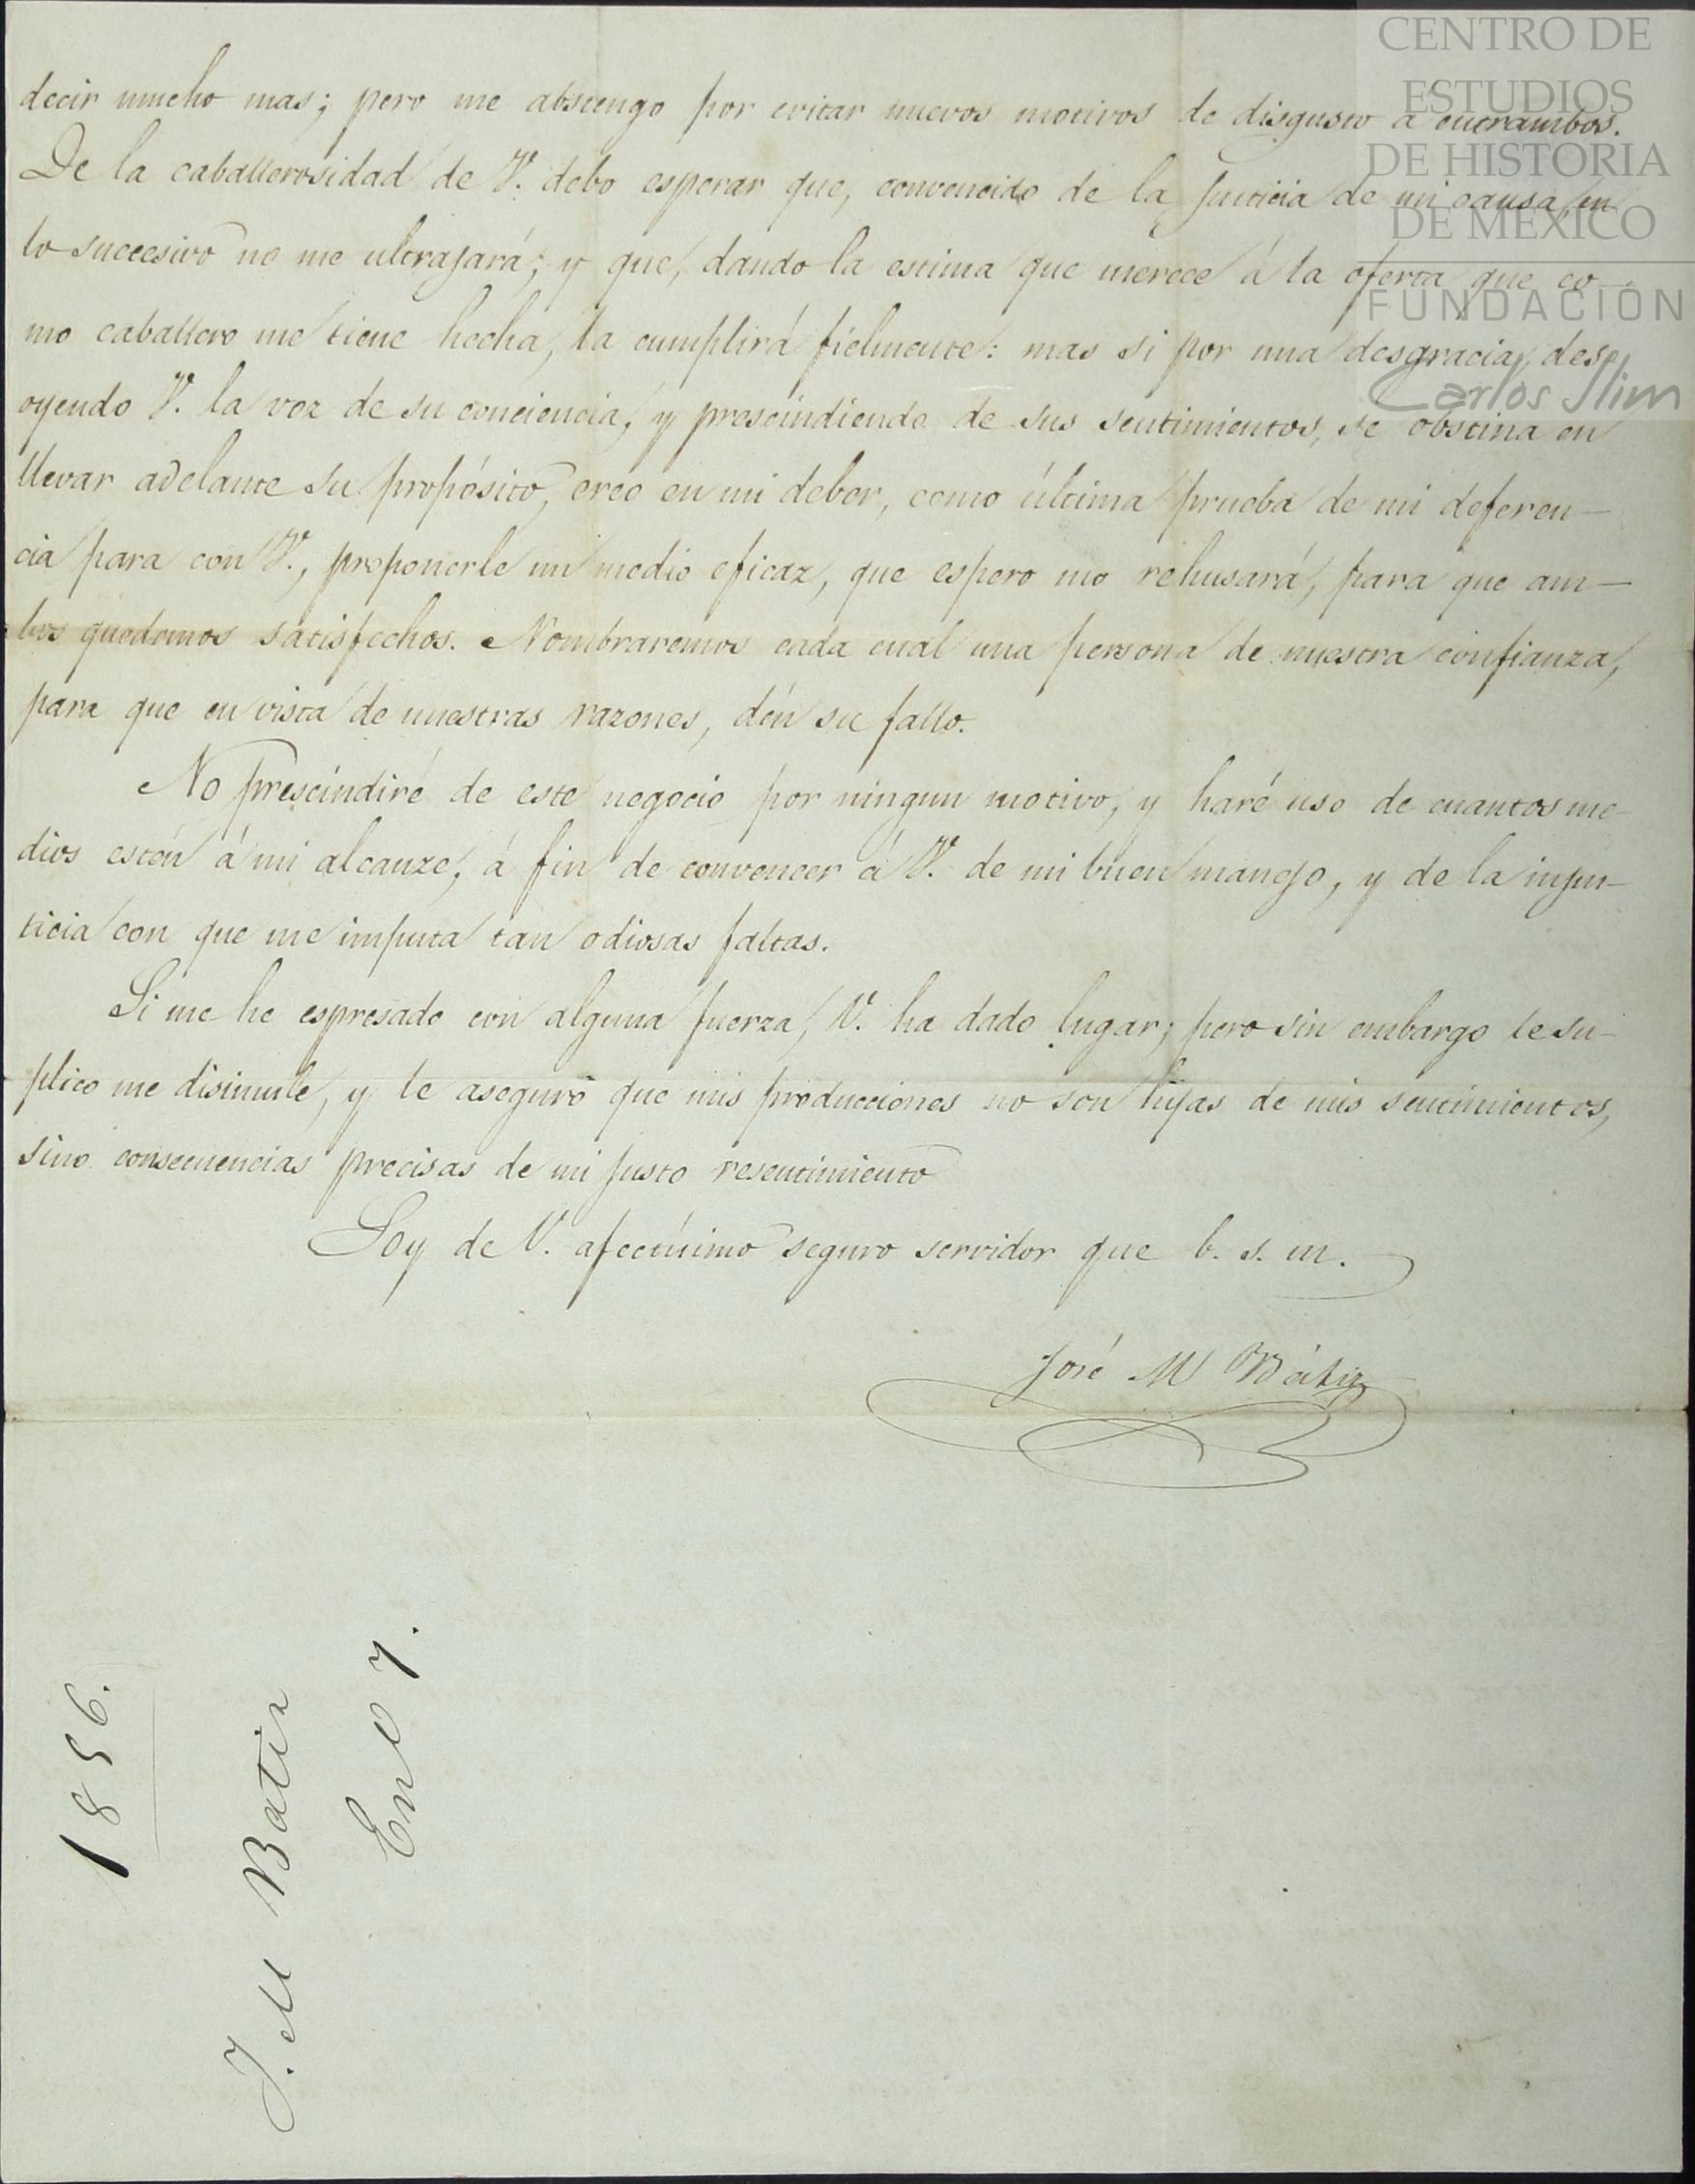 decir mucho mas; pero me abstengo por evitar nuevos motivos de disgusto a entrambos.
De la caballerosidad de V. debo esperar que, convencido de la justicia de mi causa, en
lo succesivo no me ultrajará; y que, dando la estima que merece á la oferta que co-
mo caballero me tiene hecha, la cumplirá fielmente: mas si por una desgracia, des-
oyendo V. la voz de su conciencia, y prescindiendo de sus sentimientos, se obstina en
llevar adelante su propósito, creo en mi deber, como última prueba de mi deferen-
cia para con V., proponerle un medio eficaz, que espero no rehusará, para que am-
bos quedemos satisfechos. Nombraremos cada cual una persona de nuestra confianza,
para que en vista de nuestras razones, dén su fallo.
No prescindiré de este negocio por ningun motivo, y haré uso de cuantos me-
dios estén á mi alcanze, á fin de convencer á V. de mi buen manejo, y de la injus-
ticia con que me imputa tan odiosas faltas.
Si me he espresado con alguna fuerza, V. ha dado lugar; pero sin embargo le su-
plico me disimule, y le aseguro que mis producciones no son hijas de mis sentimientos,
sino consecuencias precisas de mi justo resentimiento
Soy de V. afectísimo seguro servidor que b. s. m.
José M Bátiz
1856.
J. M Batiz
Eno 7.
CENTRO DE
ESTUDIOS
DE HISTORIA
DE MÉXICO
FUNDACIÓN
Carlos Slim